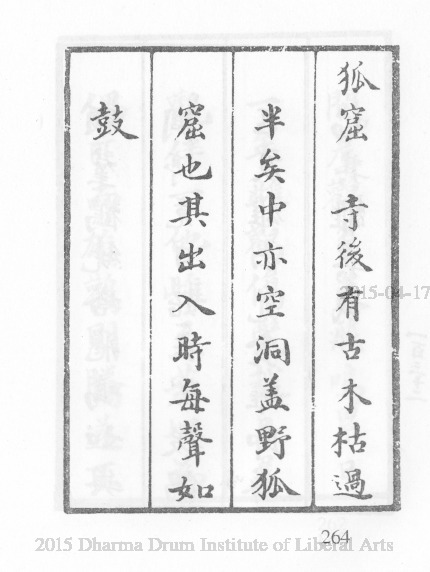 狐窟　寺後有古木枯過
半矣中亦空洞盖野狐
窟也其出入時每聲如
鼓
2015-04-17
264
2015 Dharma Drum Institute of Liberal Arts